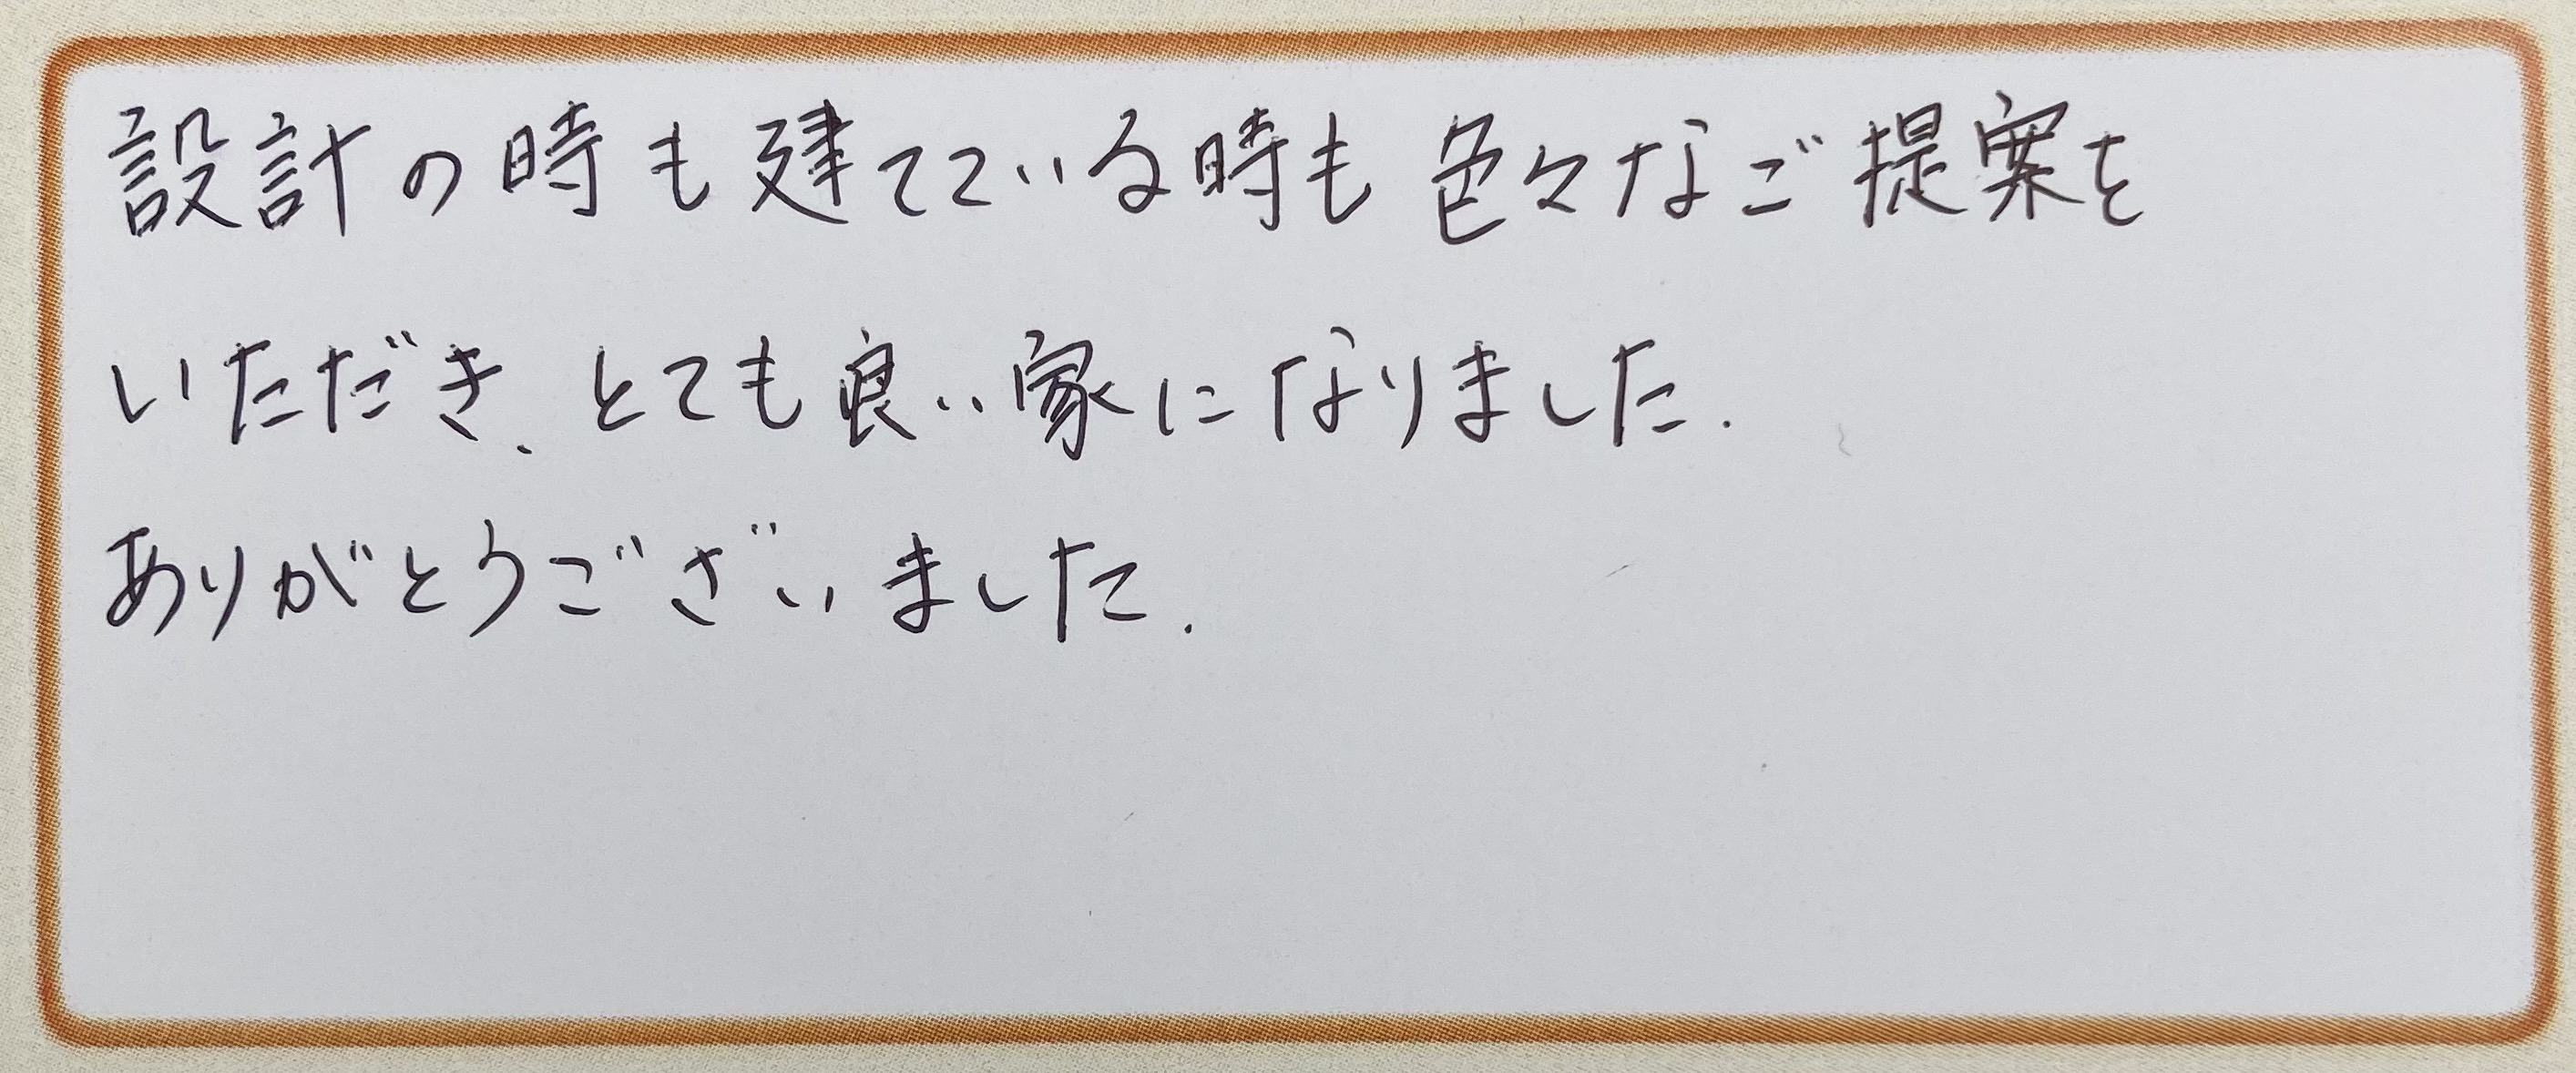 設計の時も建てている時も色々なご提案を
いただき、とても良い家になりました.
ありがとうございました.